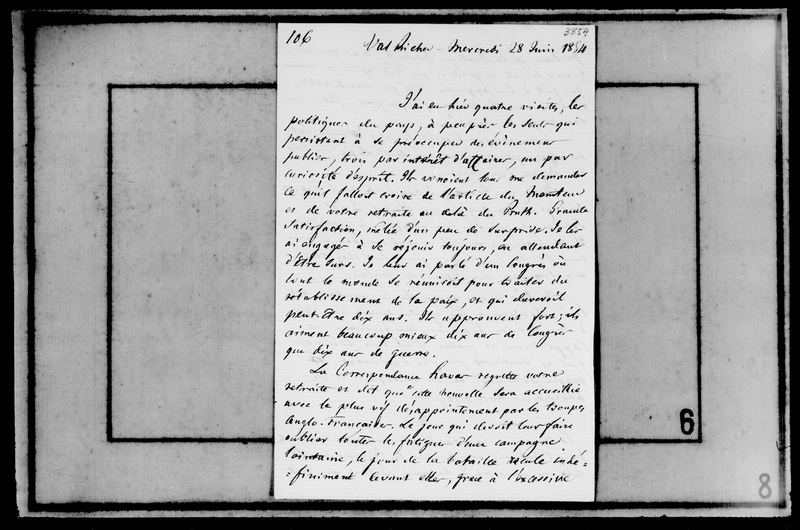 106
3854
Val Richer - Mercredi 28 Juin 1854
J'ai eu hier quatre visites, les
politiques du pays, à peu près les seuls qui
persistent à se préoccuper des évènemens
publics, trois par intérêt d'affaires, un par
curiosité d'esprit. Ils venoient tous me demander
ce qu'il falloit croire de l'article du Moniteur
et de votre retraite au delà du Pruth. Grande
satisfaction, mêlée d'un peu de surprise. Je les
ai engagés à se réjouir toujours, en attendant
d'être surs. Je leur ai parlé d'un Congrès où
tout le monde se réuniroit pour traiter du
rétablissement de la paix, et qui dureroit
peut-être dix ans. Ils approuvent fort; ils
aiment beaucoup mieux dix ans de Congrès
que dix ans de guerre.
La Correspondance Havas regrette votre
retraite et dit que "cette nouvelle sera accueillie
avec le plus vif désappointement par les troupes
Anglo-Françaises. Le jour qui devoit leur faire
oublier toutes les fatigues d'une campagne
lointaine, le jour de la bataille recule indé=
=finiment devant elles, grace à l'excessive
6
8